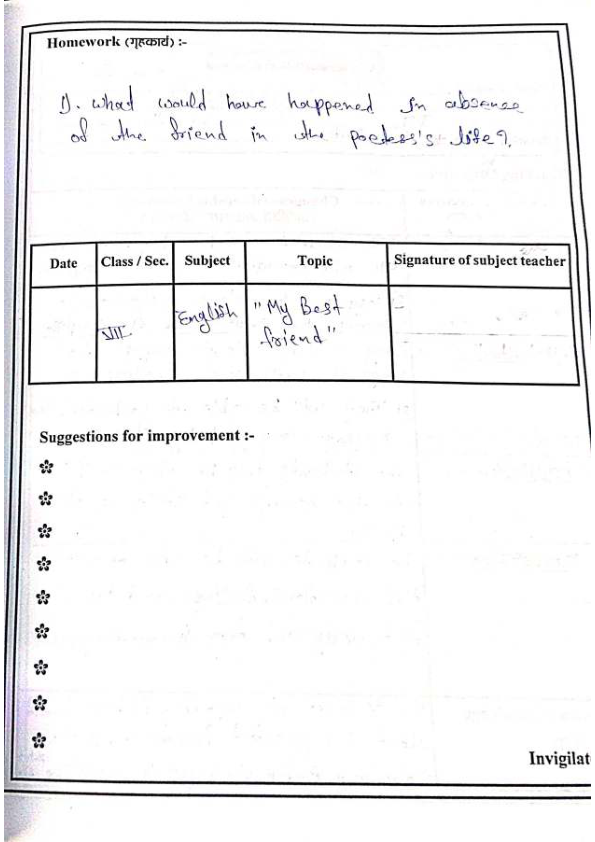 Homework (गृहकार्य) :-
1). what would have happened in absense
of the friend in the poetess's life?
Date Class / Sec. Subject Topic Signature of subject teacher
VII English "My Best
friend"
Suggestions for improvement :-
Invigilat